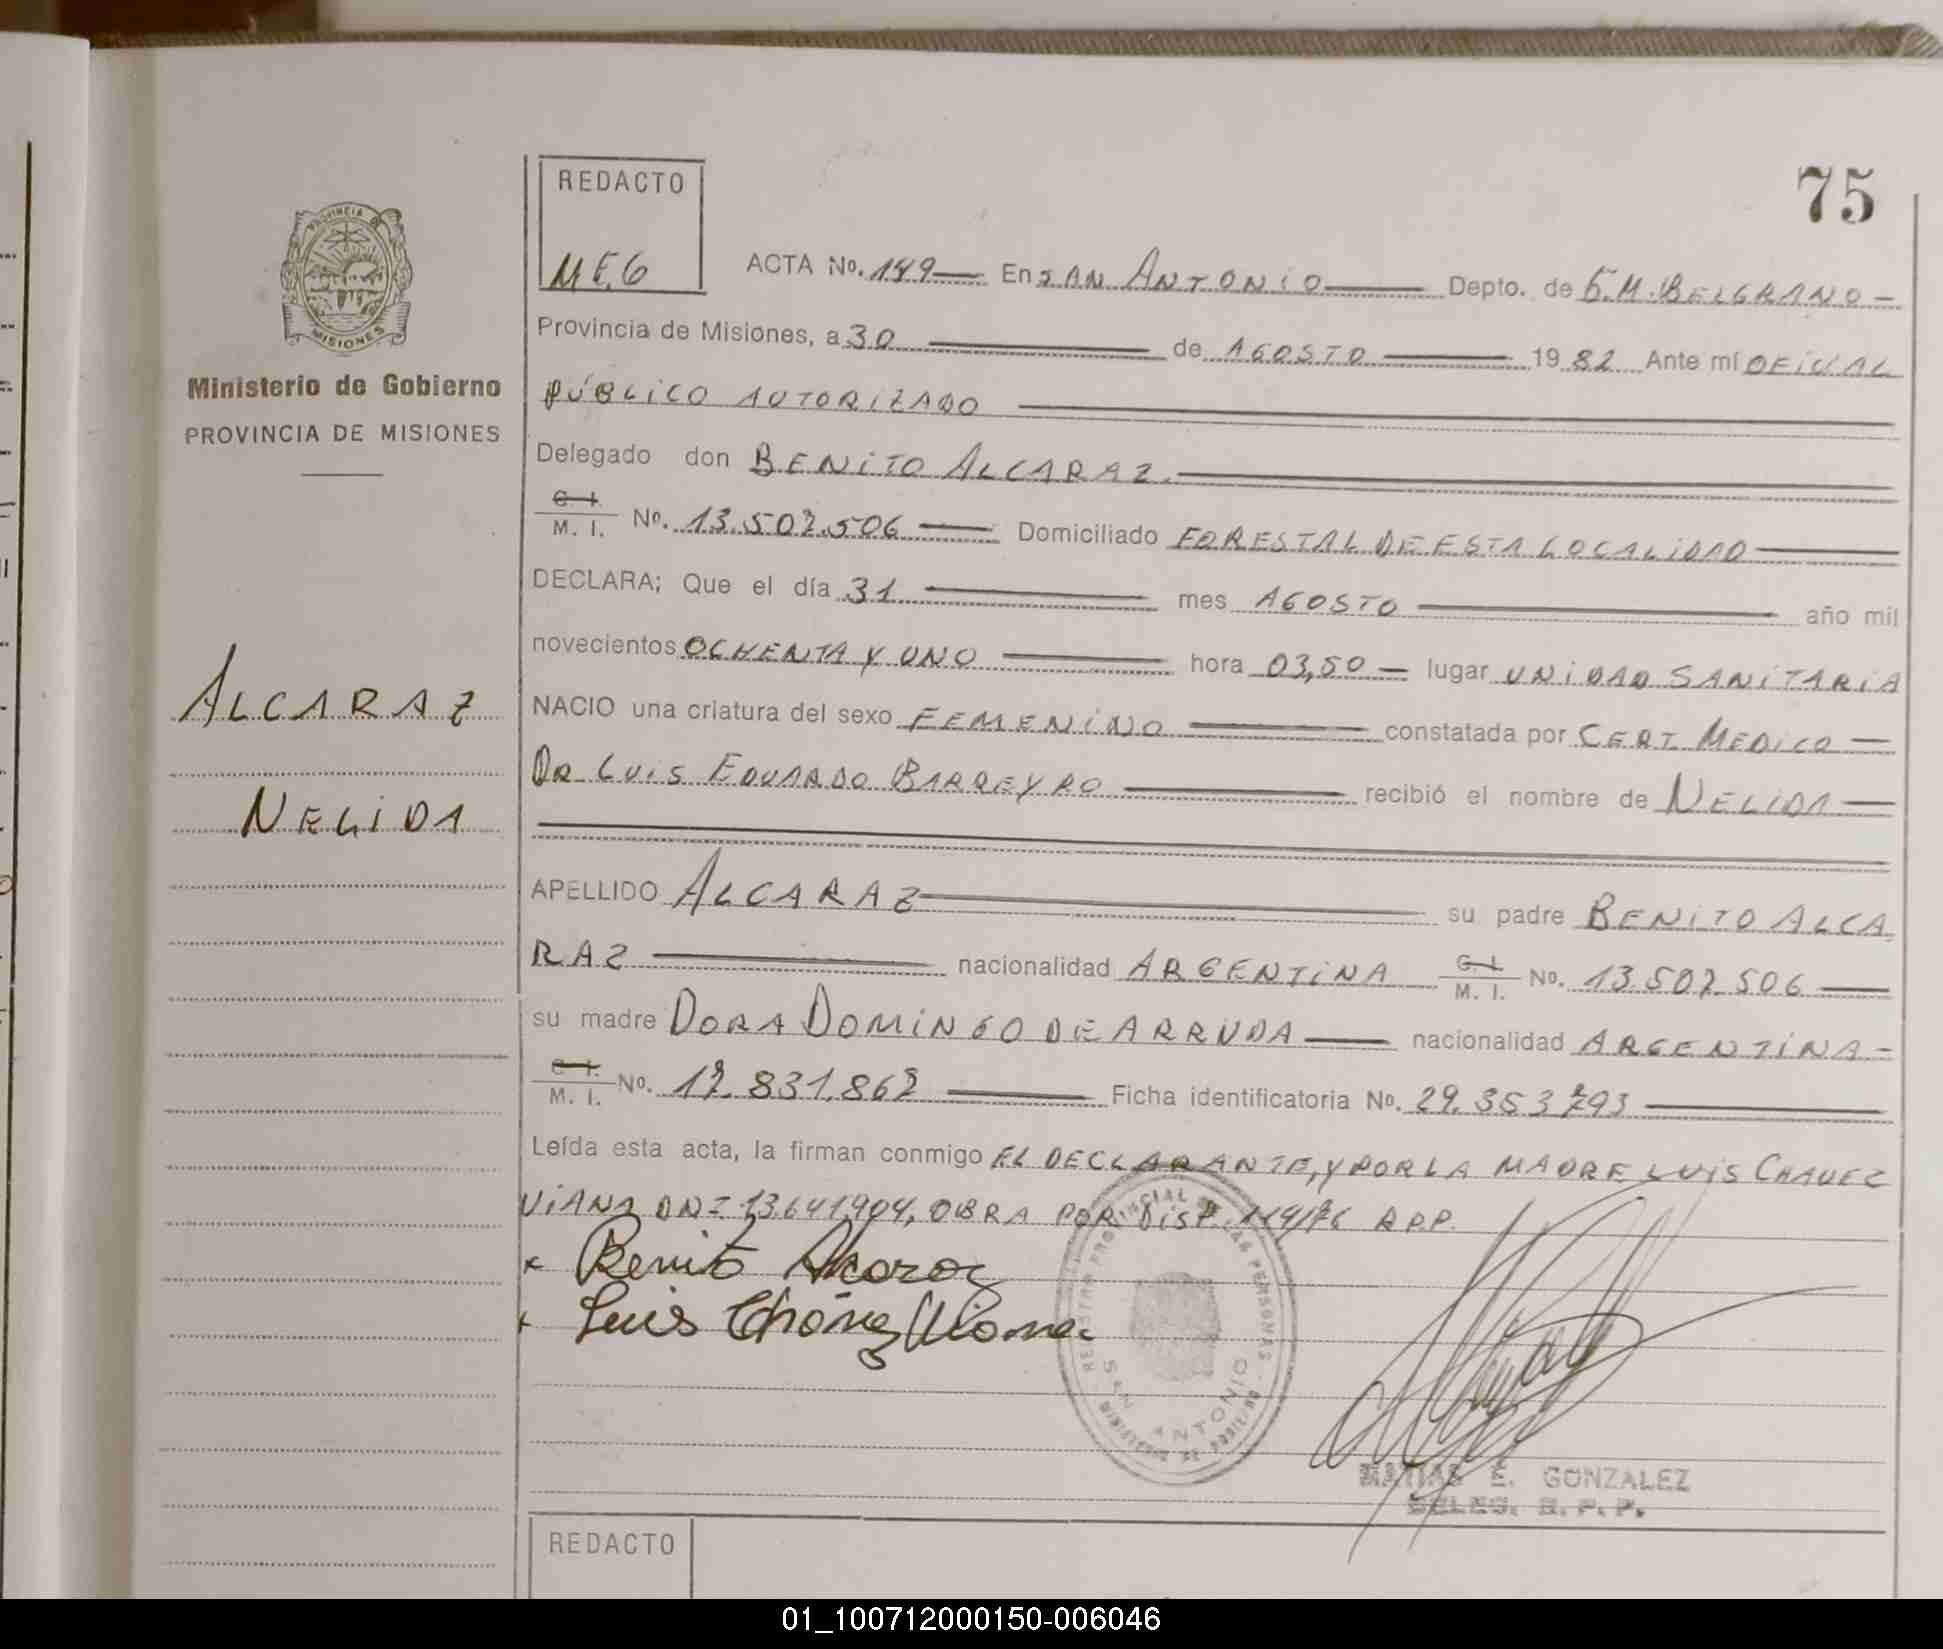 75
REDACTO
M E G
PROVINCIA DE
MISIONES
Ministerio de Gobierno
PROVINCIA DE MISIONES
ALCARAZ
NELIDA
ACTA No. 149 En SAN ANTONIO Depto. de G.M. BELGRANO
Provincia de Misiones, a 30 de AGOSTO 1982 Ante mí OFICIAL
PÚBLICO AUTORIZADO
Delegado don BENITO ALCARAZ.
C. I.
M. I. No. 13.507.506 Domiciliado FORESTAL DE ESTA LOCALIDAD
DECLARA; Que el día 31 mes AGOSTO año mil
novecientos OCHENTA Y UNO hora 03,50 lugar UNIDAD SANITARIA
NACIO una criatura del sexo FEMENINO constatada por CERT. MEDICO
DR LUIS EDUARDO BARREYRO recibió el nombre de NELIDA
APELLIDO ALCARAZ su padre BENITO ALCA
RAZ nacionalidad ARGENTINA C. I. M. I. No. 13.507.506
su madre DORA DOMINGO DE ARRUDA nacionalidad ARGENTINA
C. I.
M. I. No. 17.831.867 Ficha identificatoria No. 29.353.793
Leída esta acta, la firman conmigo EL DECLARANTE, Y POR LA MADRE LUIS CHAVEZ
VIANA DNI 13.641.904, OBRA POR DISP. 114/76 R.P.P.
x Benito Alcaraz
x Luis Chávez Viana
REGISTRO PROVINCIAL DE LAS PERSONAS
SAN ANTONIO
MATIAS E. GONZALEZ
DELEG. R. P. P.
REDACTO
01_100712000150-006046